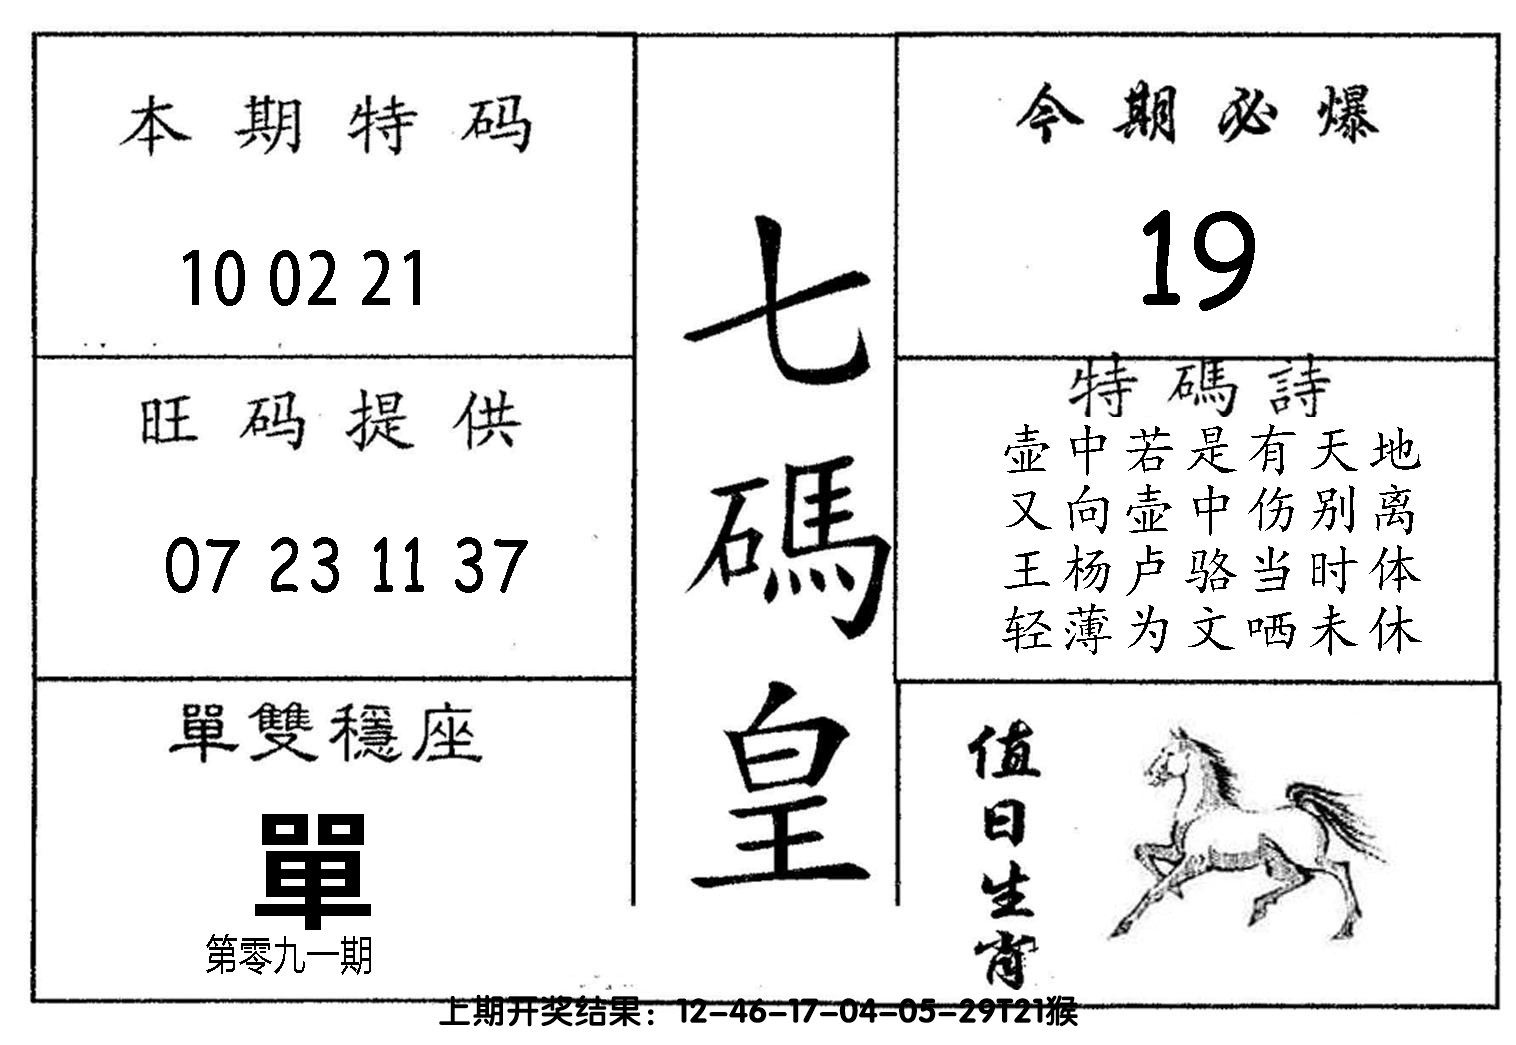 本期特码
10 02 21
旺码提供
07 23 11 37
單雙穩座
單
第零九一期
七碼皇
今期必爆
19
特碼詩
壶中若是有天地
又向壶中伤别离
王杨卢骆当时体
轻薄为文哂未休
值日生肖
上期开奖结果：12-46-17-04-05-29T21猴